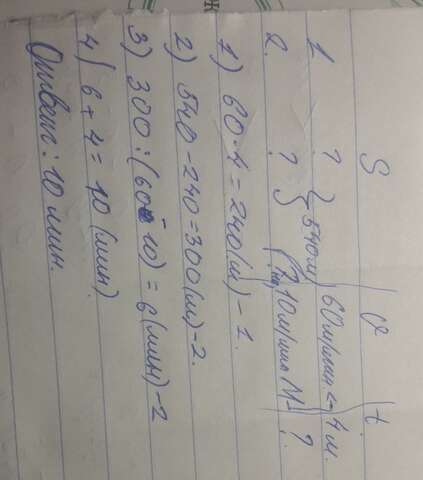 S V t
1. ? 540 м 60 м/мин. 4 м.
2. ? ? 10 м/мин М ?
1) 60·4=240(м)-1.
2) 540-240=300(м)-2.
3) 300:(60-10)=6(мин)-2
4) 6+4=10(мин)
Ответ: 10 мин.